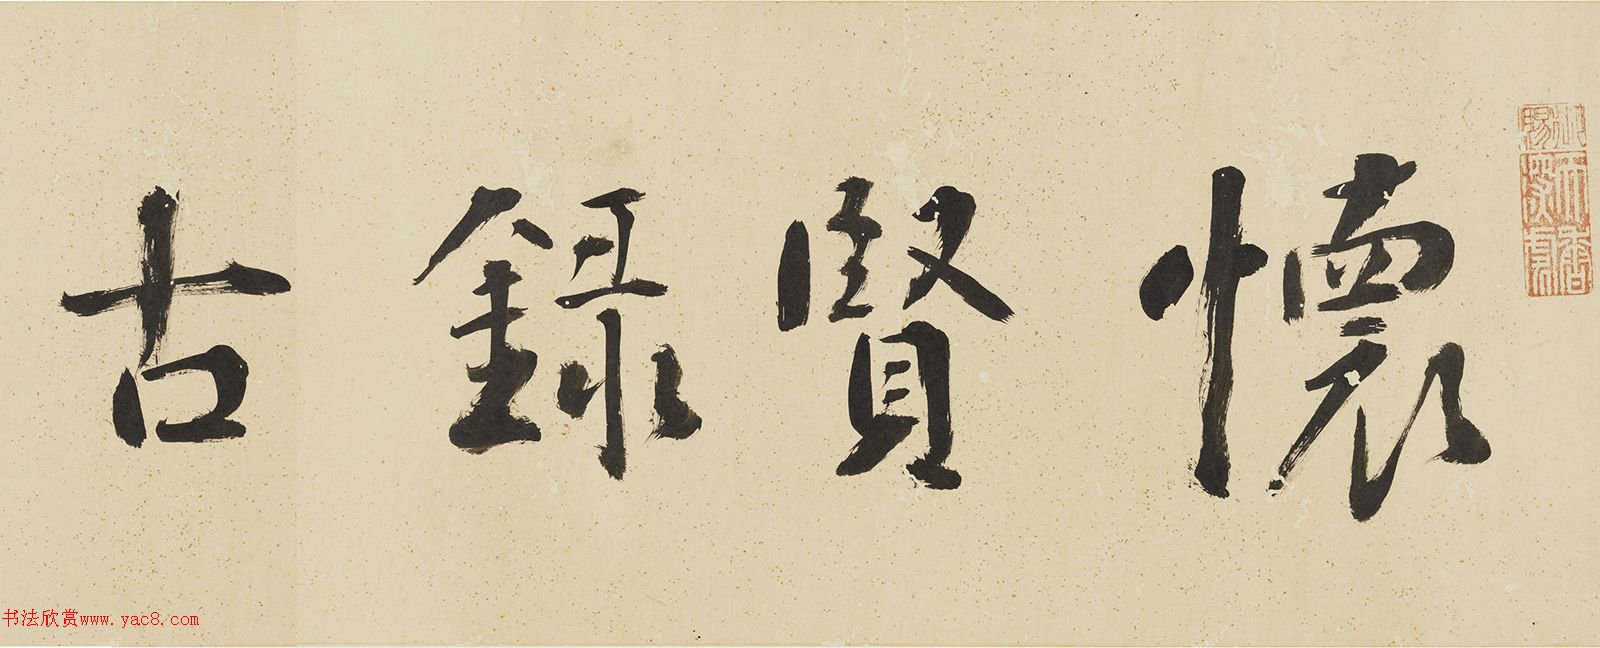 懷賢錄古
书法欣赏www.yac8.com